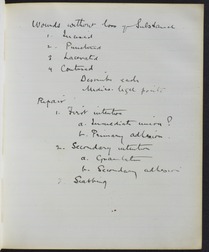 Wounds without loss of Substance
1. Incised
2. Punctured
3 Lacerated
4 Contused
Describe each
Medico-legal points
Repair
1. First intention
a. Immediate union?
b. Primary adhesion.
2. Secondary intention
a. Granulation
b. Secondary adhesion
3 Scabbing